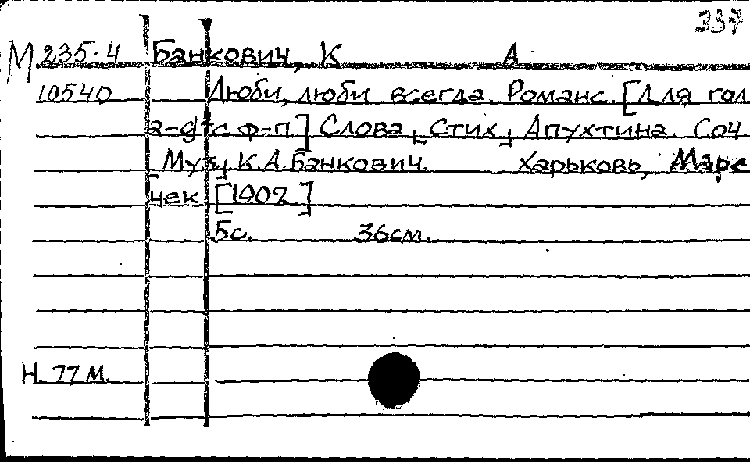 337
М 235-4 Банкович, К А
10540 Люби, люби всегда. Романс. [Для гол
a-g² с ф-п.] Слова [Стих.] Апухтина. Соч
[Муз.] К.А.Банкович. Харьковъ, Марс
чек [1902]
5с. 36см.
Н. 77 м.